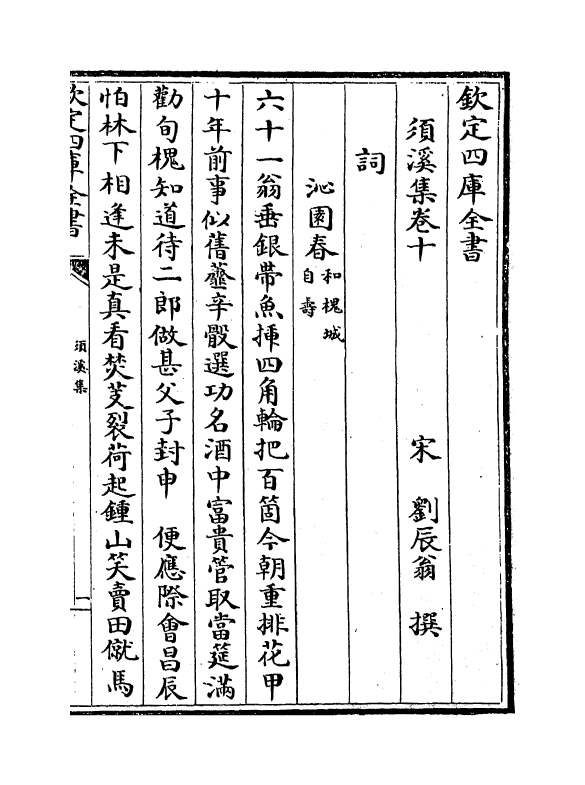 欽定四庫全書
須溪集卷十
宋 劉辰翁 撰
詞
沁園春和槐城自壽
六十一翁垂銀帶魚揷四角輪把百箇今朝重排花甲
十年前事似舊虀辛骰選功名酒中富貴管取當筵滿
勸旬槐知道待二郎做甚父子封申 便應際會昌辰
怕林下相逢未是真看焚芰裂荷起鍾山笑賣田僦馬
欽定四庫全書
須溪集
一